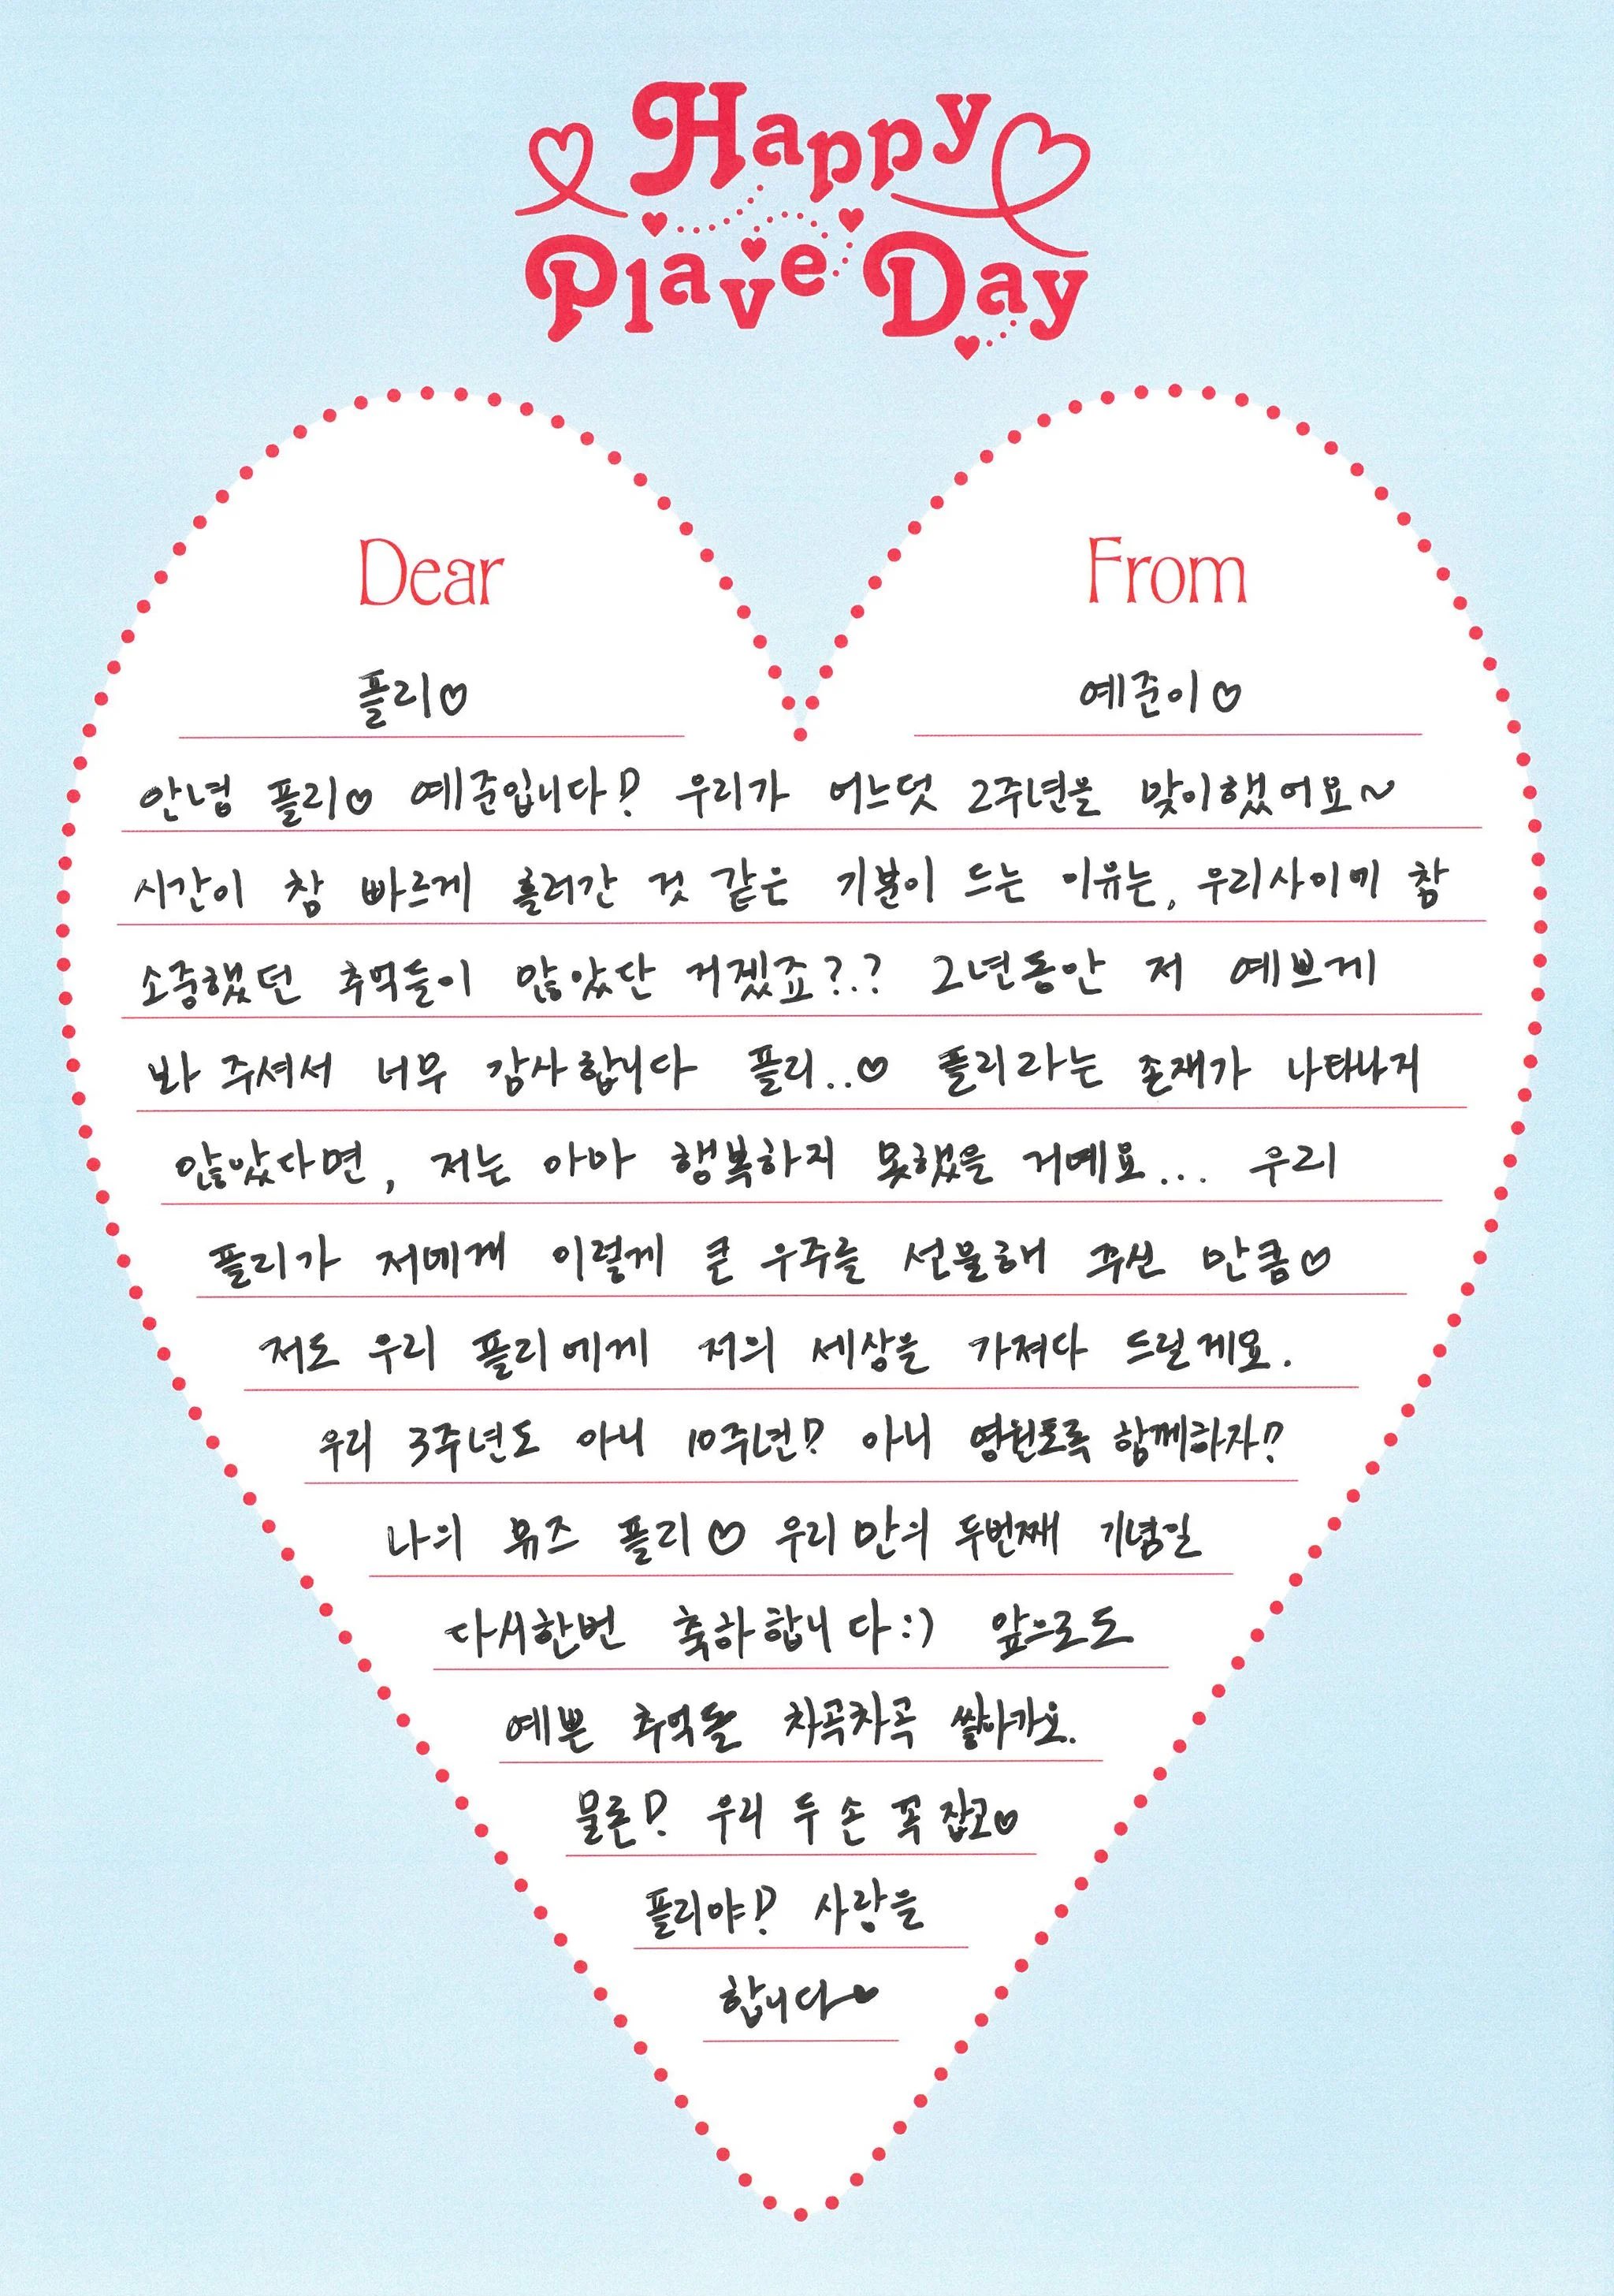 Happy
Plave Day
Dear
From
플리♡
예준이♡
안녕 플리♡ 예준입니다! 우리가 어느덧 2주년을 맞이했어요~
시간이 참 빠르게 흘러간 것 같은 기분이 드는 이유는, 우리사이에 참
소중했던 추억들이 많았단 거겠죠?.? 2년동안 저 예쁘게
봐 주셔서 너무 감사합니다 플리..♡ 플리라는 존재가 나타나지
않았다면, 저는 아마 행복하지 못했을 거예요... 우리
플리가 저에게 이렇게 큰 우주를 선물해 주신 만큼♡
저도 우리 플리에게 저의 세상을 가져다 드릴게요.
우리 3주년도 아니 10주년! 아니 영원토록 함께하자!
나의 뮤즈 플리♡ 우리만의 두번째 기념일
다시한번 축하합니다:) 앞으로도
예쁜 추억들 차곡차곡 쌓아가요.
물론! 우리 두 손 꼭 잡고♡
플리야! 사랑을
합니다♥